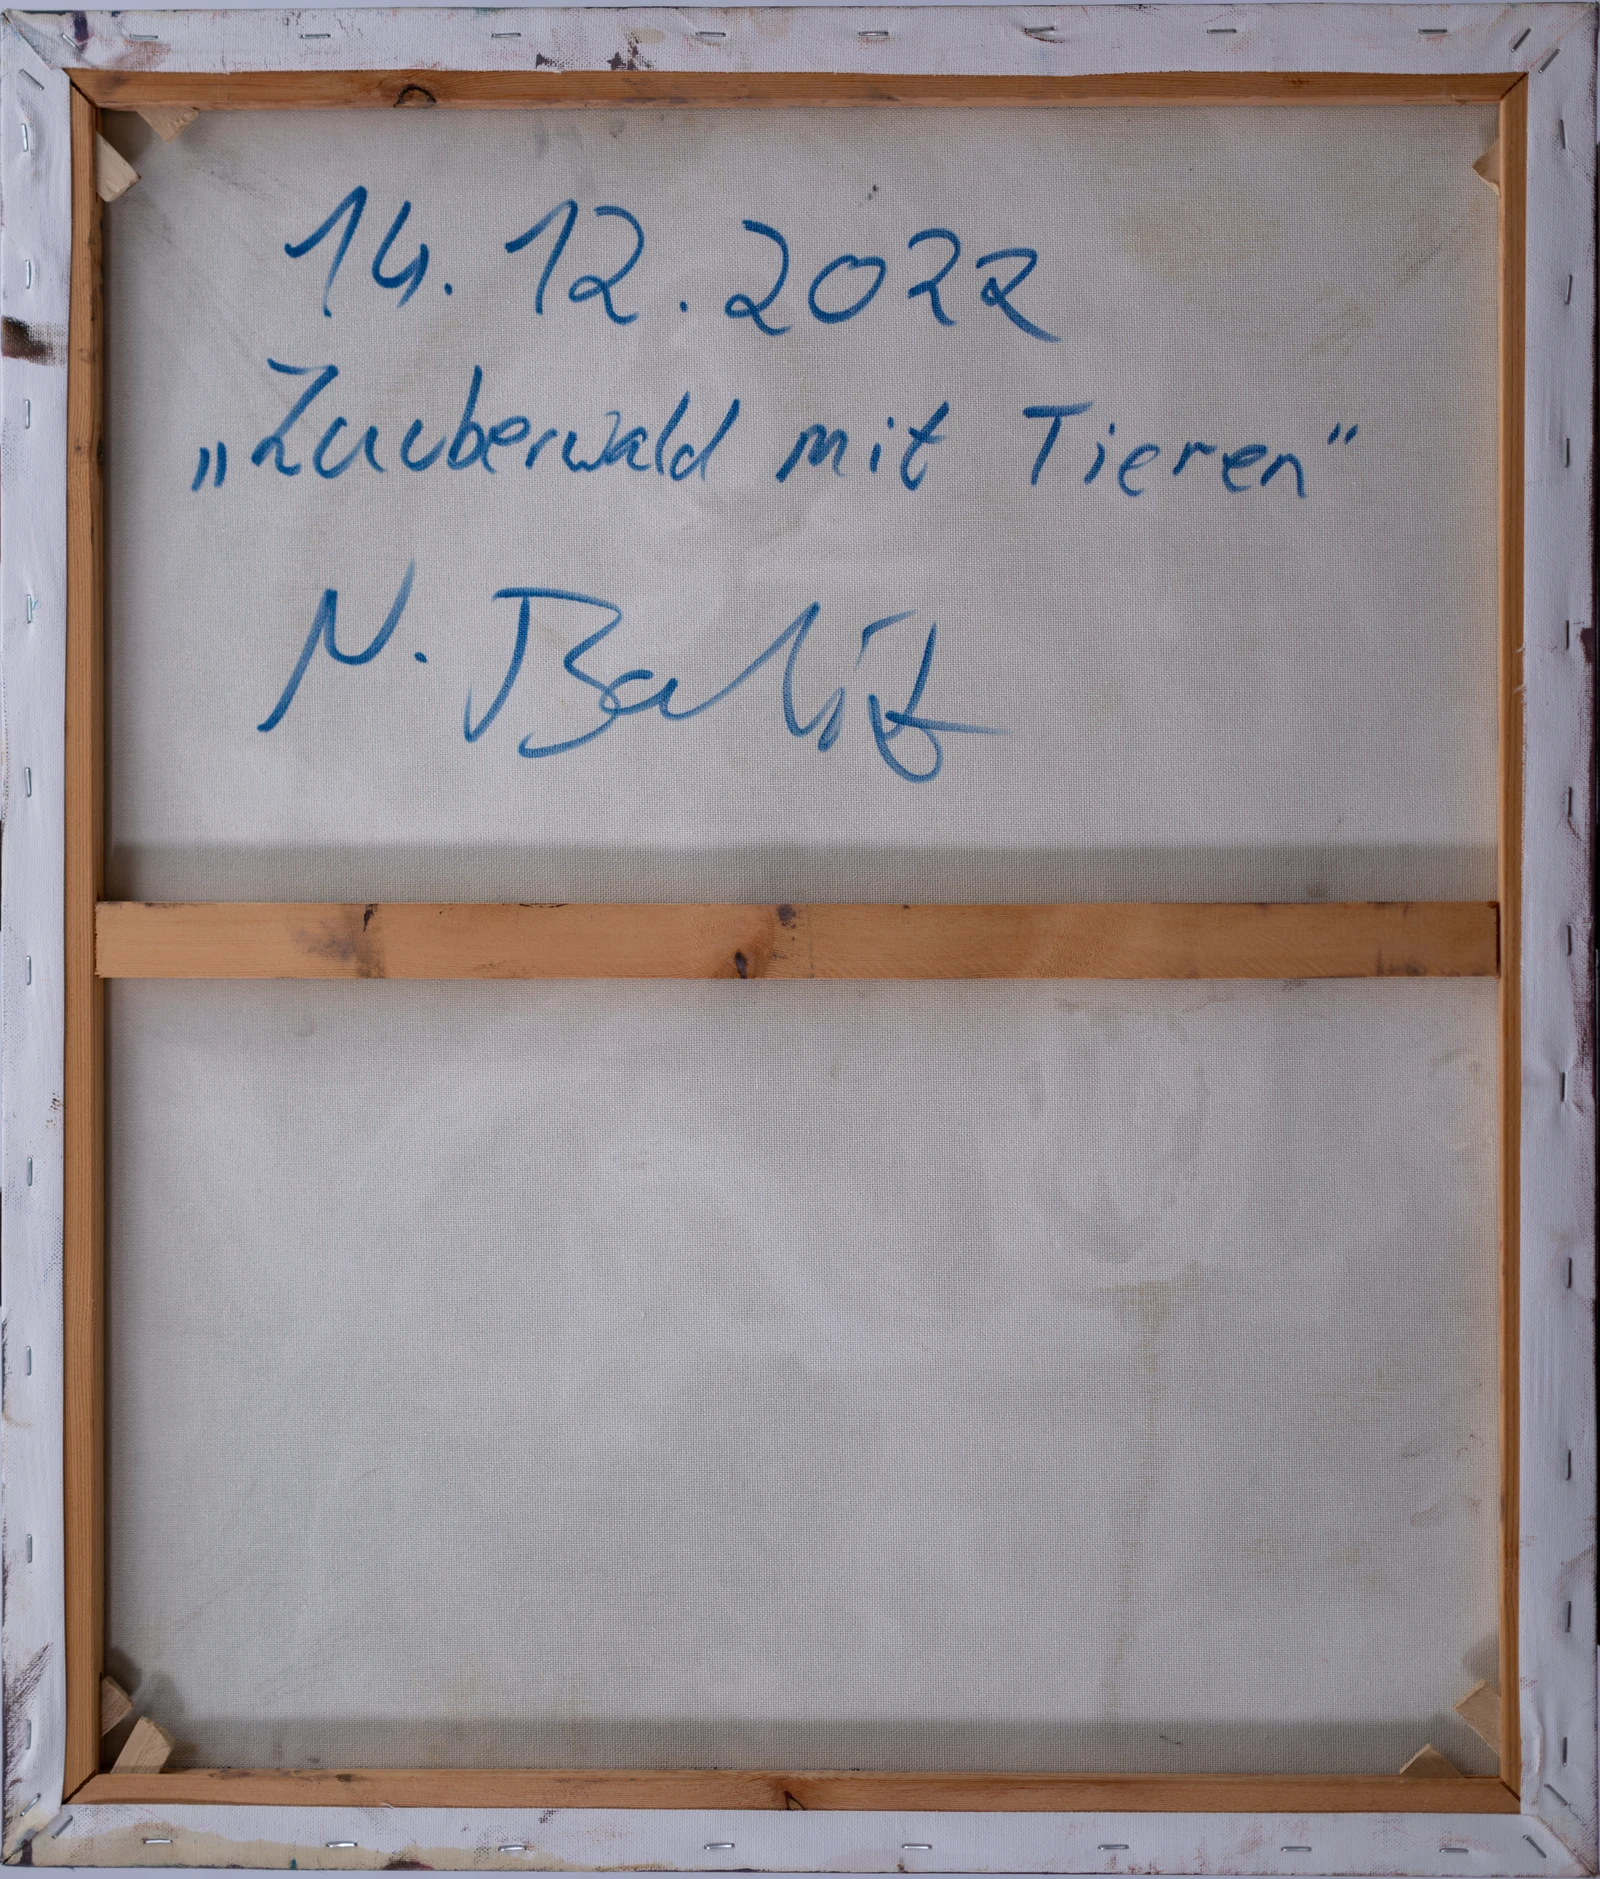 14.12.2022
„Zauberwald mit Tieren“
N.